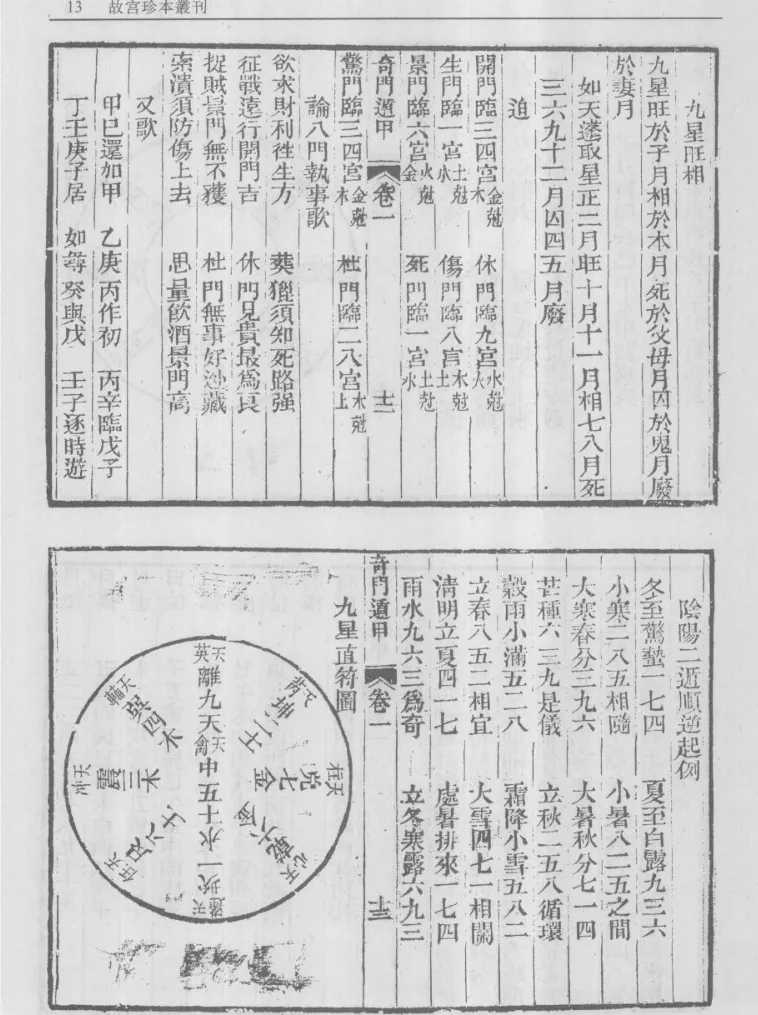 13 故宮珍本叢刊
九星旺相
九星旺於子月相於本月死於父母月囚於鬼月廢
於妻月
如天蓬取星正二月旺十月十一月相七八月死
三六九十二月囚四五月廢
迫
開門臨三四宮金尅木 休門臨九宮水尅火
生門臨一宮土尅水 傷門臨八宮木尅土
景門臨六宮火尅金 死門臨一宮土尅水
奇門遁甲 卷一 十二
驚門臨三四宮金尅木 杜門臨二八宮木尅土
論八門執事歌
欲求財利徃生方 葬獵須知死路强
征戰遠行開門吉 休門見貴最爲良
捉賊門無不獲 杜門無事好迯藏
索潰須防傷上去 思量飲酒景門高
又歌
甲巳還加甲 乙庚丙作初 丙辛臨戊子
丁壬庚子居 如尋癸與戊 壬子逐時遊
陰陽二遁順逆起例
冬至驚蟄一七四 夏至白露九三六
小寒二八五相隨 小暑八二五之間
大寒春分三九六 大暑秋分七一四
芒種六三九是儀 立秋二五八循環
穀雨小滿五二八 霜降小雪五八二
立春八五二相宜 大雪四七一相關
清明立夏四一七 處暑排來一七四
雨水九六三爲奇 立冬寒露六九三
奇門遁甲 卷一 十三
九星直符圖
天英 離九天
天芮 坤二土
天柱 兌七金
天心 乾六金
天蓬 坎一水
天任 艮八土
天冲 震三木
天輔 巽四木
天禽 中五十